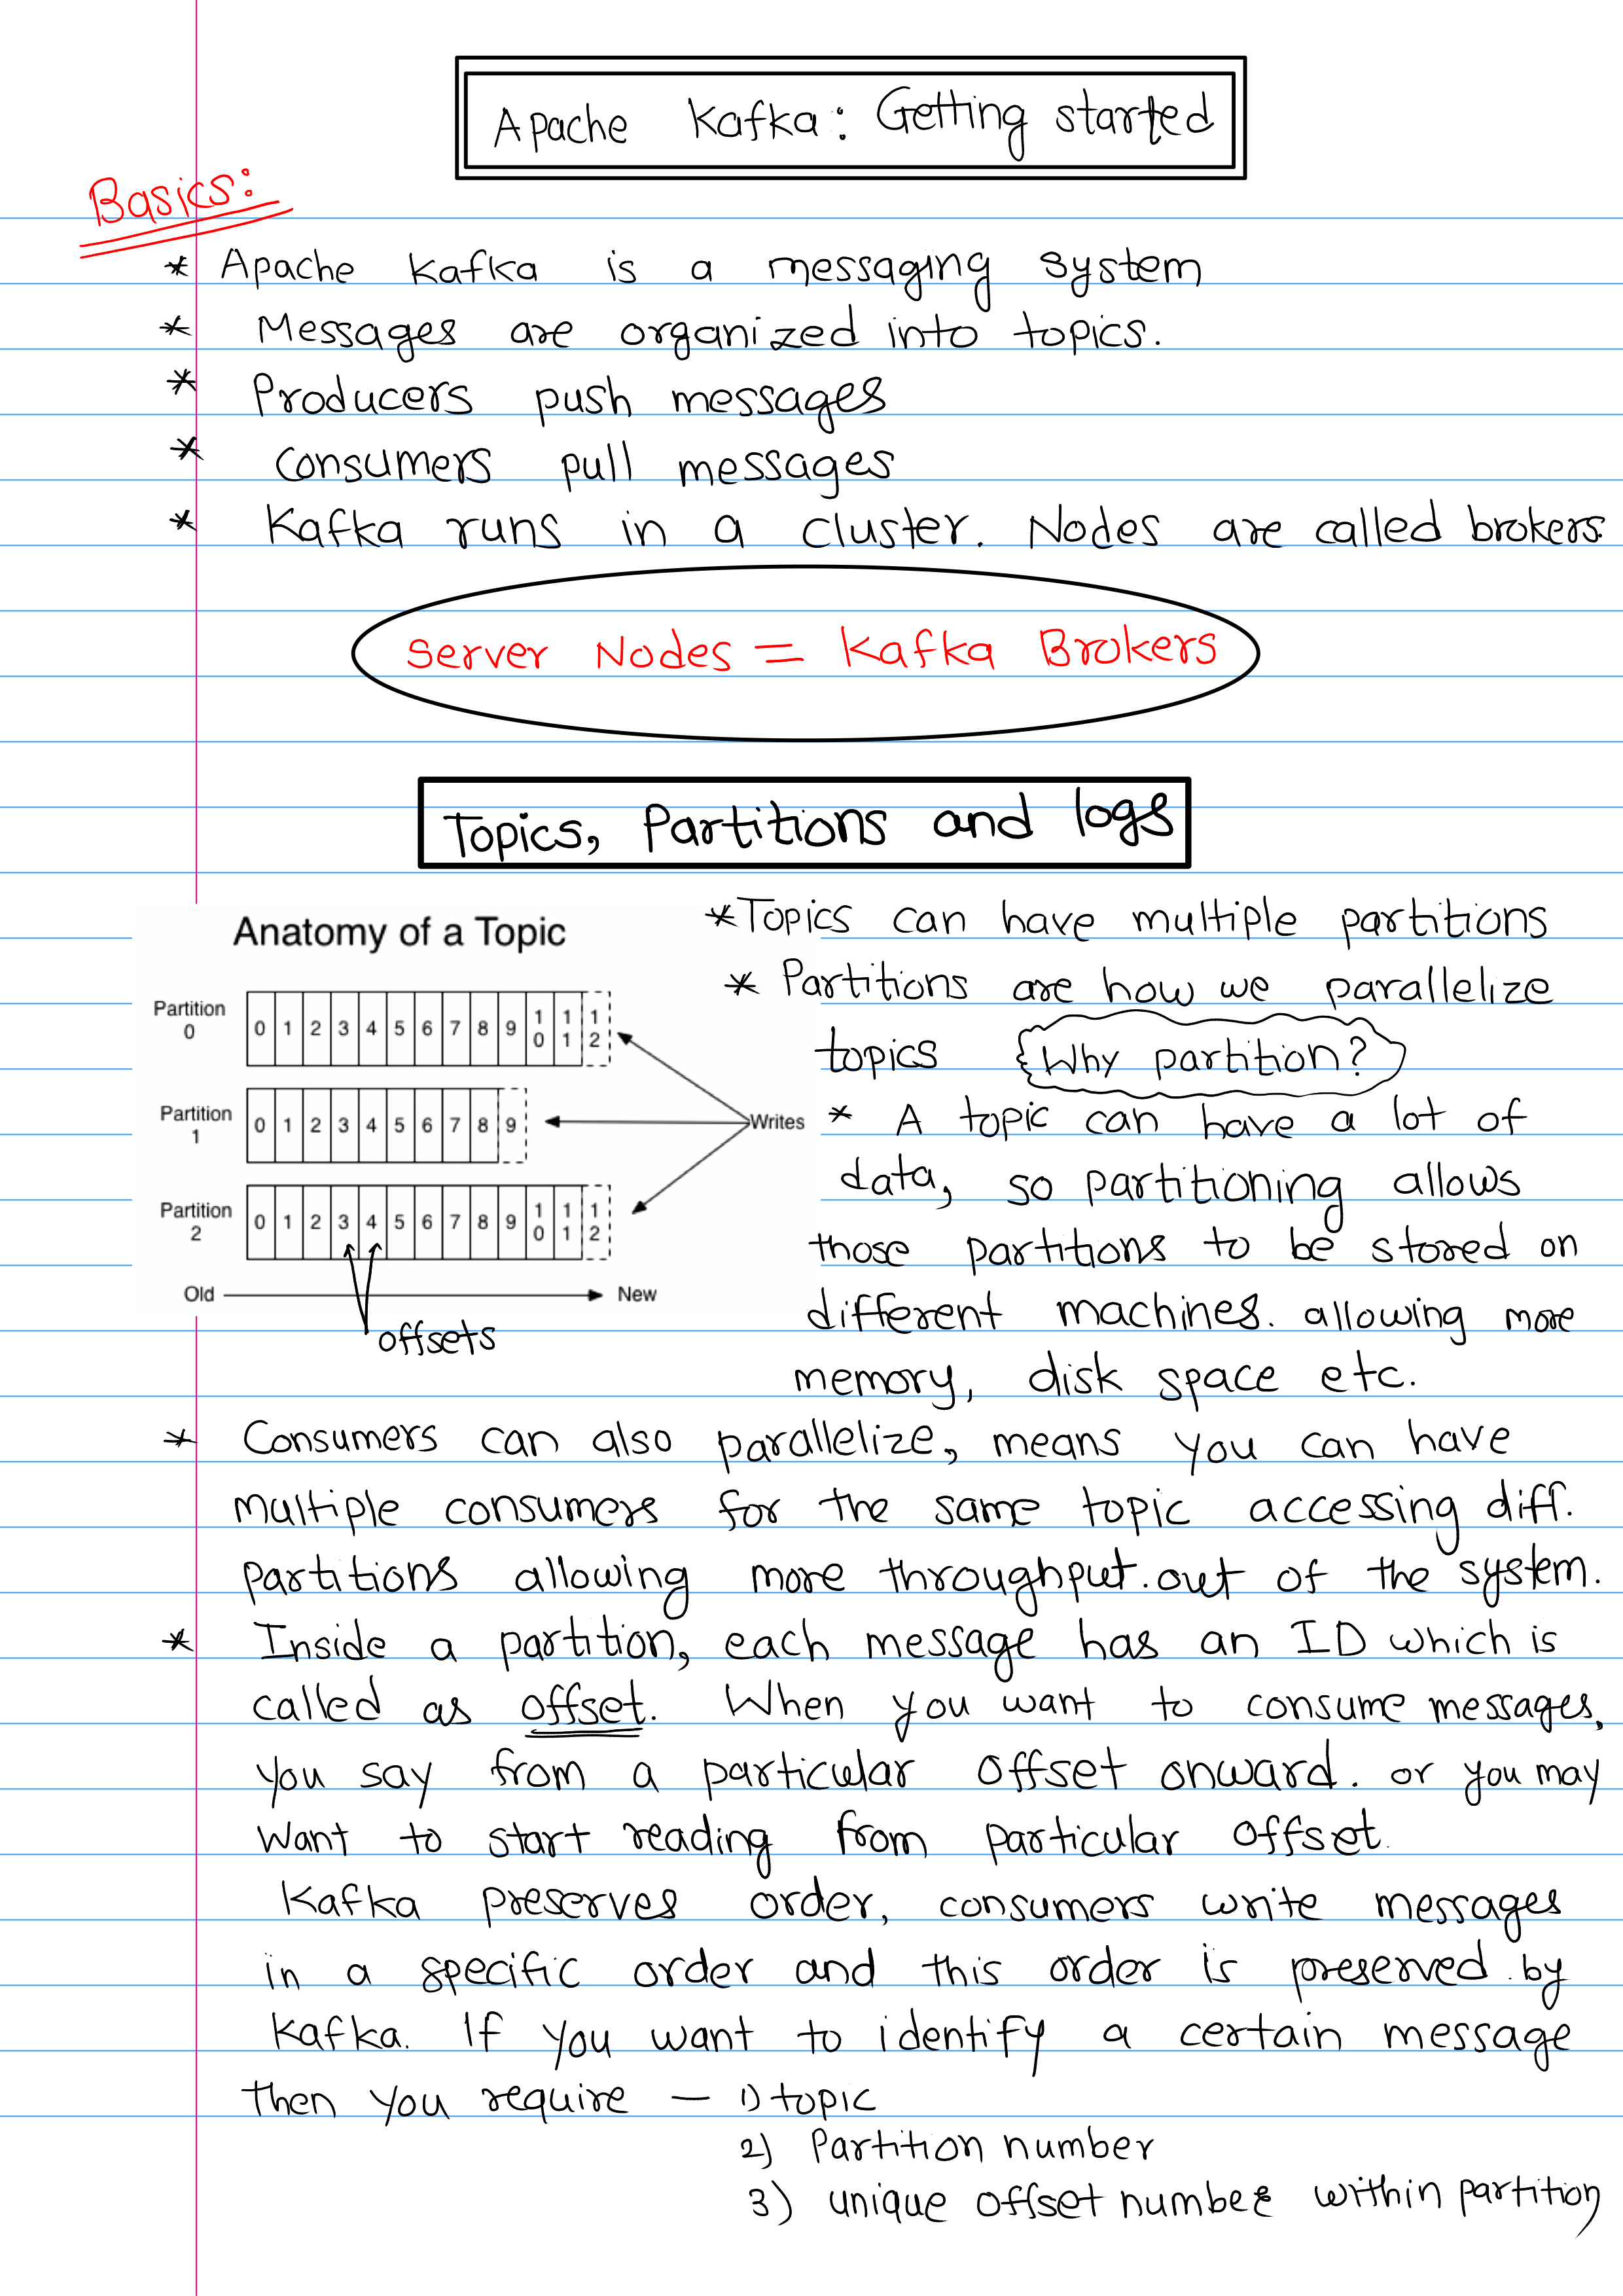 Apache Kafka: Getting started
Basics:
* Apache Kafka is a messaging system
* Messages are organized into topics.
* Producers push messages
* Consumers pull messages
* Kafka runs in a cluster. Nodes are called brokers.
Server Nodes = Kafka Brokers
Topics, Partitions and logs
Anatomy of a Topic
Partition 0
0 1 2 3 4 5 6 7 8 9 10 11 12
Partition 1
0 1 2 3 4 5 6 7 8 9
Writes
Partition 2
0 1 2 3 4 5 6 7 8 9 10 11 12
Old New
offsets
* Topics can have multiple partitions
* Partitions are how we parallelize
topics Why partition?
* A topic can have a lot of
data, so partitioning allows
those partitions to be stored on
different machines. allowing more
memory, disk space etc.
* Consumers can also parallelize, means you can have
multiple consumers for the same topic accessing diff.
partitions allowing more throughput. out of the system.
* Inside a partition, each message has an ID which is
called as offset. When you want to consume messages,
you say from a particular offset onward. or you may
want to start reading from particular offset.
Kafka preserves order, consumers write messages
in a specific order and this order is preserved by
Kafka. If you want to identify a certain message
then you require — 1) topic
2) Partition number
3) unique offset number within partition